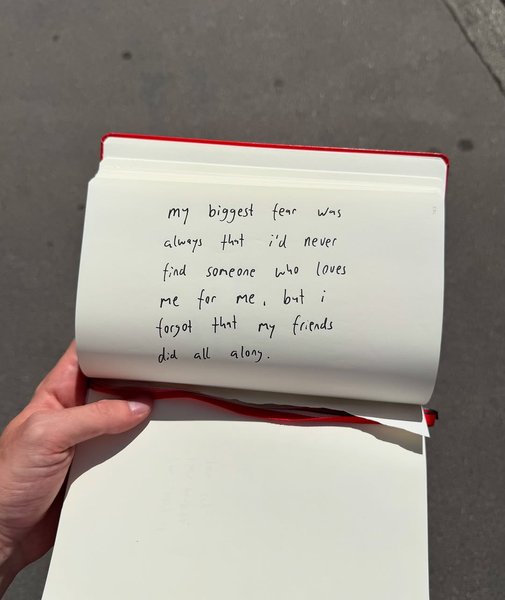 my biggest fear was
always that i'd never
find someone who loves
me for me, but i
forgot that my friends
did all along.